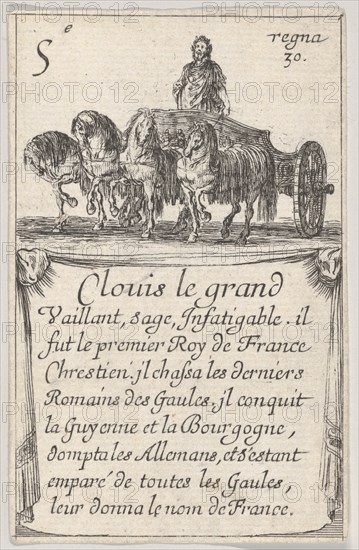 Sᵉ
regna
30.
Clouis le grand
Vaillant, sage, Infatigable. il
fut le premier Roy de France
Chrestien. jl chassa les derniers
Romains des Gaules, jl conquit
la Guyenne et la Bourgogne,
dompta les Allemans, et s'estant
emparé de toutes les Gaules,
leur donna le nom de France.